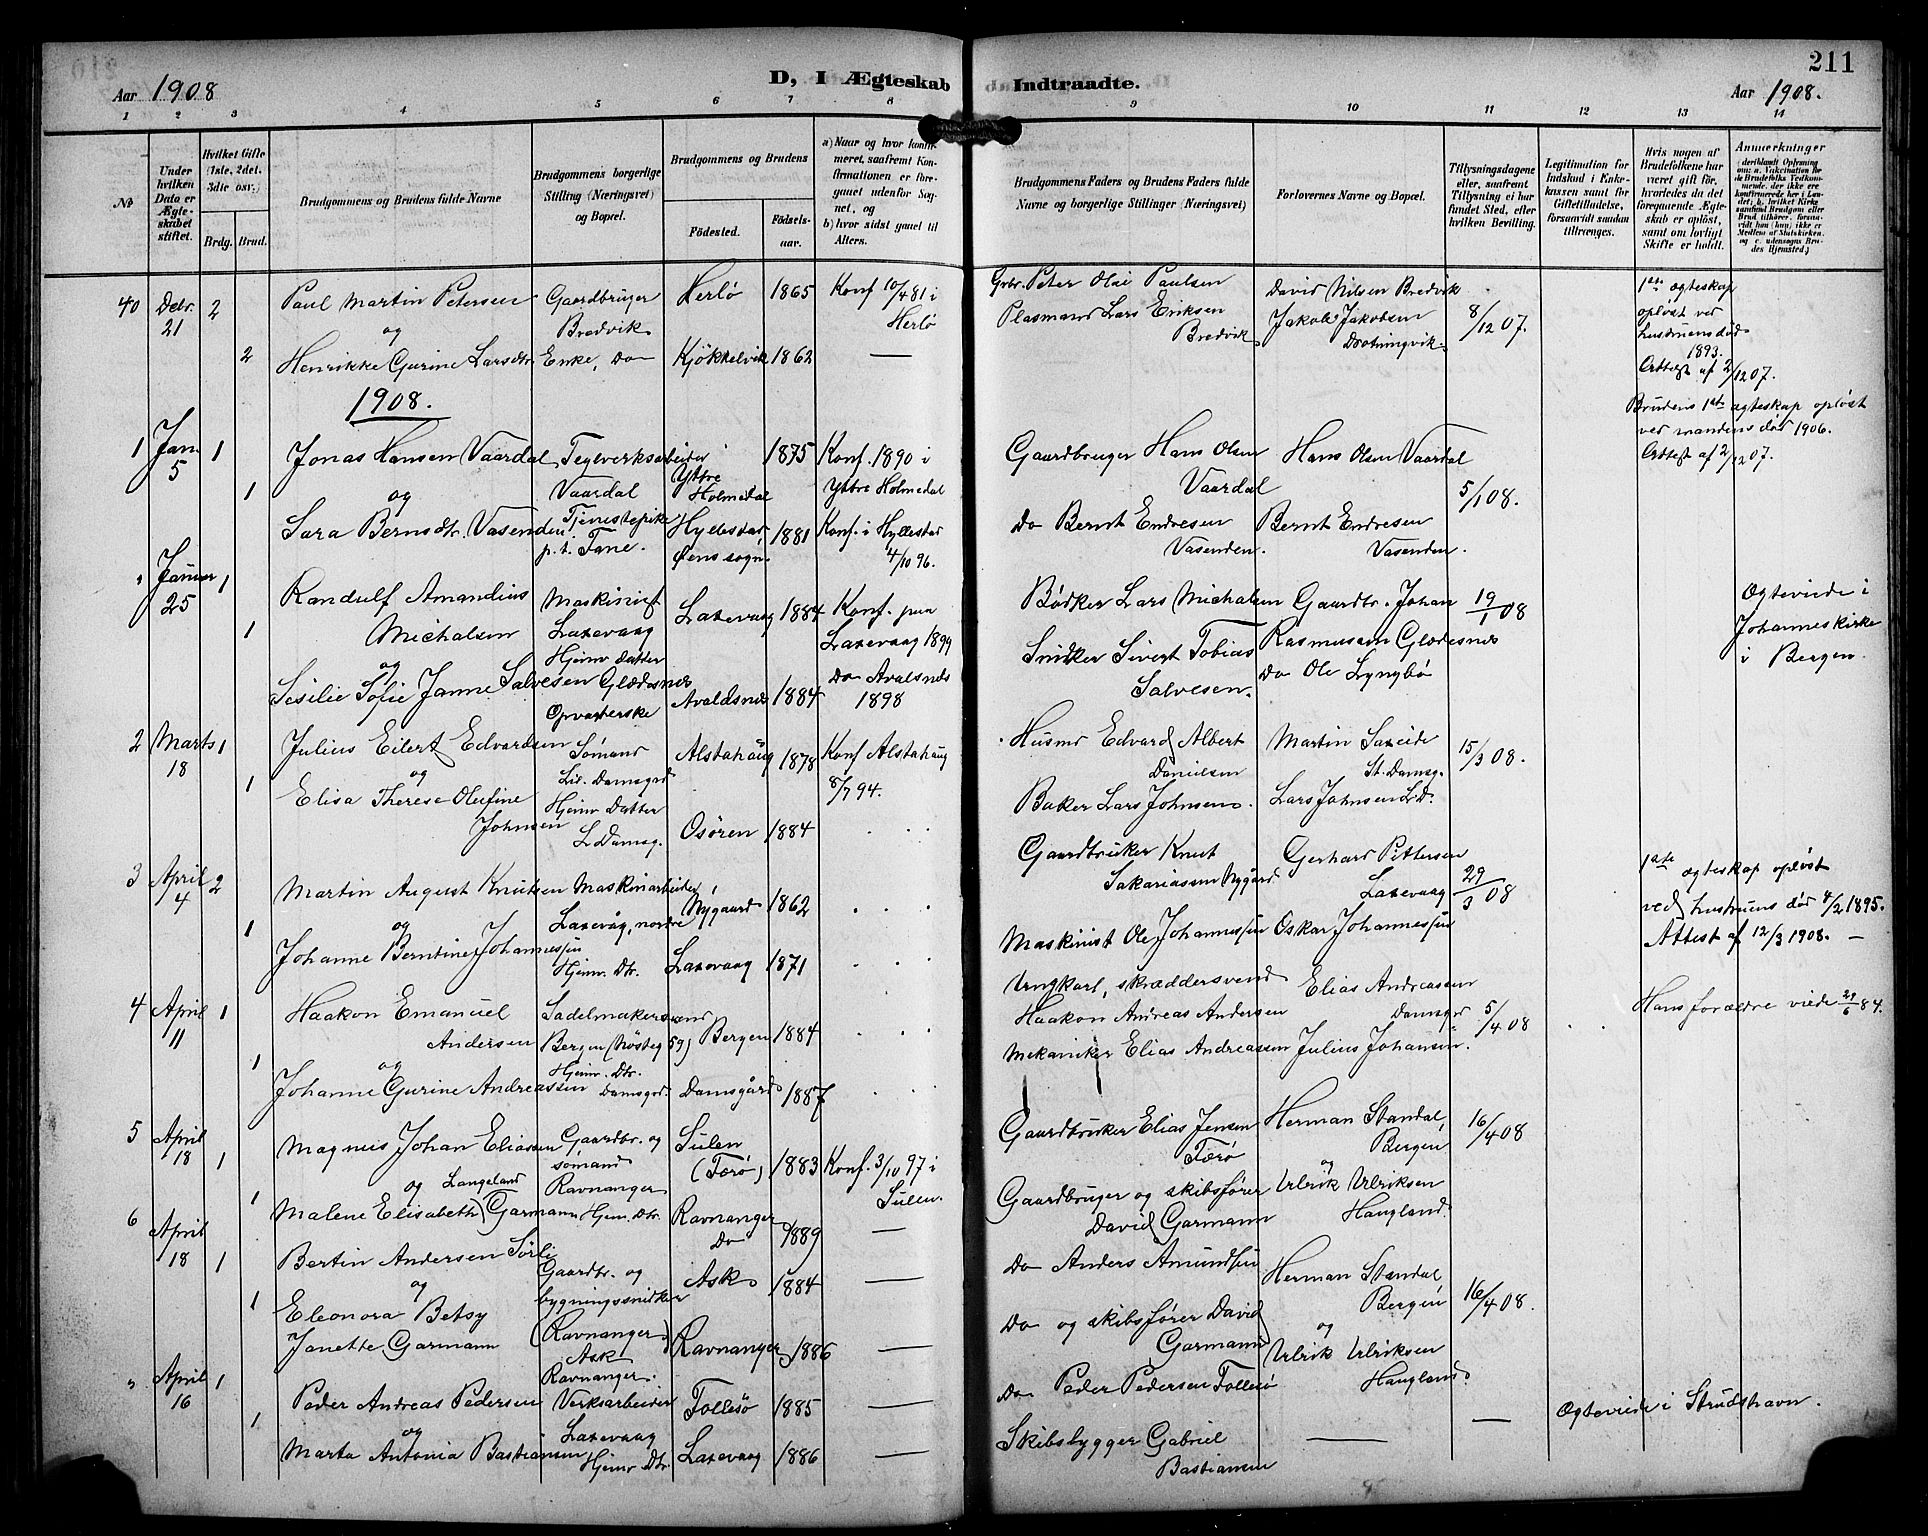 211
Aar 1908
D, I Ægteskab
Indtraadte.
Aar 1908.
1 2 3 4 5 6 7 8 9 10 11 12 13 14
No
Under hvilken Dato er Ægteskabet stiftet.
Hvilket Gifte (1ste, 2det, 3die osv.)
Brdg. Brud.
Brudgommens og Brudens fulde Navne
Brudgommens borgerlige Stilling (Næringsvei) og Bopæl.
Brudgommens og Brudens
Fødested.
Fødselsaar.
a) Naar og hvor konfirmeret, saafremt Konfirmationen er foregaaet udenfor Sognet, og
b) hvor sidst gaaet til Alters.
Brudgommens Faders og Brudens Faders fulde Navne og borgerlige Stillinger (Næringsvei)
Forlovernes Navne og Bopæl.
Tillysningsdagene eller, saafremt Tillysning ei har fundet Sted, efter hvilken Bevilling.
Legitimation for Indskud i Enkekassen samt for Giftetilladelse, forsaavidt saadan tiltrænges.
Hvis nogen af Brudefolkene har været gift før, hvorledes da det foregaaende Ægteskab er opløst, samt om lovligt Skifte er holdt.
Anmerkninger
40 Dcbr. 21 2 Paul Martin Petersen Gaardbruger Bredvik Herlø 1865 Konf 10/4 81 i Herlø
Grbr. Peter Olai Paulsen
David Nilsen Bredvik
8/12 07.
1ste ægteskap opløst ved hustruens død 1893.
Attest af 2/12 07.
og
2 Henrikke Gurine Larsdtr Enke, Do Kjøkkelvik 1862 —
Plasmand Lars Eriksen Bredvik
Jakob Jakobsen Drotningvik.
Brudens 1ste ægteskap opløst ved mandens død 1906.
Attest af 2/12 07.
1908.
1 Jan. 5 1 Jonas Hansen Vaardal Teglverksarbeider Vaardal Yttre Holmedal 1875 Konf. 1890 i Yttre Holmedal
Gaardbruger Hans Olsen Vaardal
Hans Olsen Vaardal
5/1 08.
og
1 Sara Berntsdtr. Vasenden Tjenestepike p.t. Fane. Hyllestad Øens sogn. 1881 Konf. i Hyllestad 4/10 96.
Do Bernt Endresen Vasenden.
Bernt Endresen Vasenden.
" Januar 25 1 Randulf Amandius Michalsen Maskinist Laxevaag Laxevaag 1884 Konf. paa Laxevaag 1899
Bødker Lars Michalsen
Gaardbr. Johan Rasmussen Glædesnes
19/1 08
Ægteviede i Johanneskirke i Bergen.
og
1 Sesilie Sofie Janne Salvesen Hjemv datter Glædesnes Opvarterske Avaldsnes 1884 Do Avalsnes 1898
Snidker Sivert Tobias Salvesen.
Do Ole Lyngbø
2 Marts 18 1 Julius Eilert Edvardsen Sømand Lil. Damsgrd Alstahaug 1878 Konf Alstahaug 8/7 94.
Husmd Edvard Albert Danielsen
Martin Saxeide St. Damsg.
15/3 08.
og
1 Elisa Therese Olufine Johnsen Hjemv Datter L. Damsg. Osøren 1884
Baker Lars Johnsen.
Lars Johnsen L.D.
3 April 4 2 Martin August Knutsen Maskinarbeider Laxevåg, nordre Nygaard 1862
Gaardbruker Knut Sakariassen Nygård
Gerhard Pettersen Laxevaag
29/3 08
1ste ægteskap opløst ved hustruens død 4/2 1895.
Attest af 12/3 1908. —
og
1 Johanne Berntine Johannessen Hjemv. Dtr. Laxevaag 1871
Maskinist Ole Johannessen
Oskar Johannessen
4 April 11 1 Haakon Emanuel Andersen Sadelmakersvend Bergen (Nösteg 59) Bergen 1884
Ungkarl, skræddersvend Haakon Andreas Andersen
Elias Andreassen Damsgrd
5/4 08
Hans forældre viede 29/6 84.
og
1 Johanne Gurine Andreassen Hjemv. Dtr. Damsgrd. Damsgård 1887
Mekaniker Elias Andreassen
Julius Johansen.
5 April 18 1 Magnus Johan Eliassen Langeland Gaardbr. og sømand Ravnanger Sulen (Færø) 1883 Konf. 3/10 97 i Sulen.
Gaardbruker Elias Jensen Færø
Herman Standal, Bergen
16/4 08
og
1 Malene Elisabeth Garmann Hjem. Dtr. Ravnanger 1889 —
Gaardbruger og skibsfører David Garmann
og Ulrik Ulriksen Haugland.
6 April 18 1 Bertin Andersen Sørli Gaardbr. og bygningssnidker (Ravnanger) Ask Do Ask 1884 —
Do Anders Amundsen
Herman Standal, Bergen
16/4 08.
og
1 Eleonora Betsy Janette Garmann Ravnanger. Ravnanger 1886 —
Do og skibsfører David Garmann
og Ulrik Ulriksen Haugland.
" April 16 1 Peder Andreas Pedersen Verksarbeider Laxevaag Follesø 1885 —
Do Peder Pedersen Follesø
—
Ægteviede i Strudshavn.
og
1 Marta Antonia Bastiansen Hjemv Dtr. Laxevaag 1886 —
Skibsbygger Gabriel Bastiansen
—